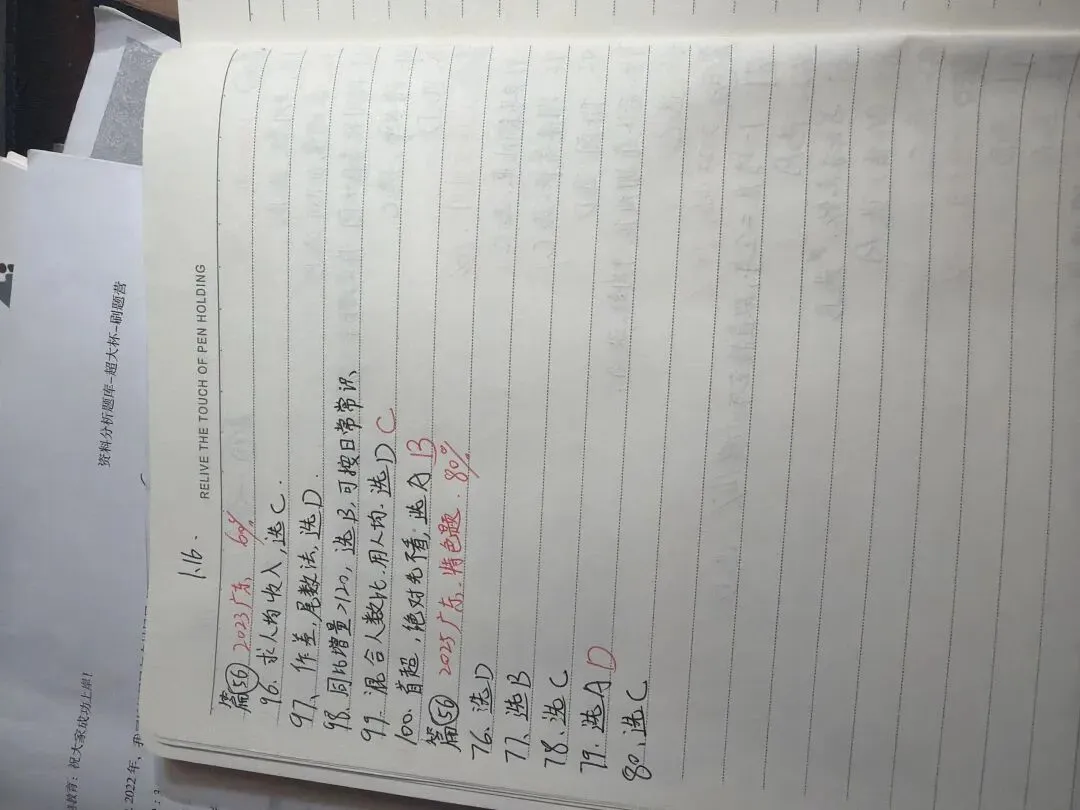 RELIVE THE TOUCH OF PEN HOLDING
1.16.
篇56 2023广东 60%
96. 求人均收入,选C.
97、作差,尾数法,选D.
98、同比增量>120,选B,可按日常常识、
99、混合人数比.用人均.选D C
100、首超,绝对先看,选A B
篇56 2025广东.特色题.80%
76、选D
77、选B
78、选C
79、选A D
80、选C
资料分析题库-超大杯-刷题营
教育:祝大家成功上岸!
2022年、